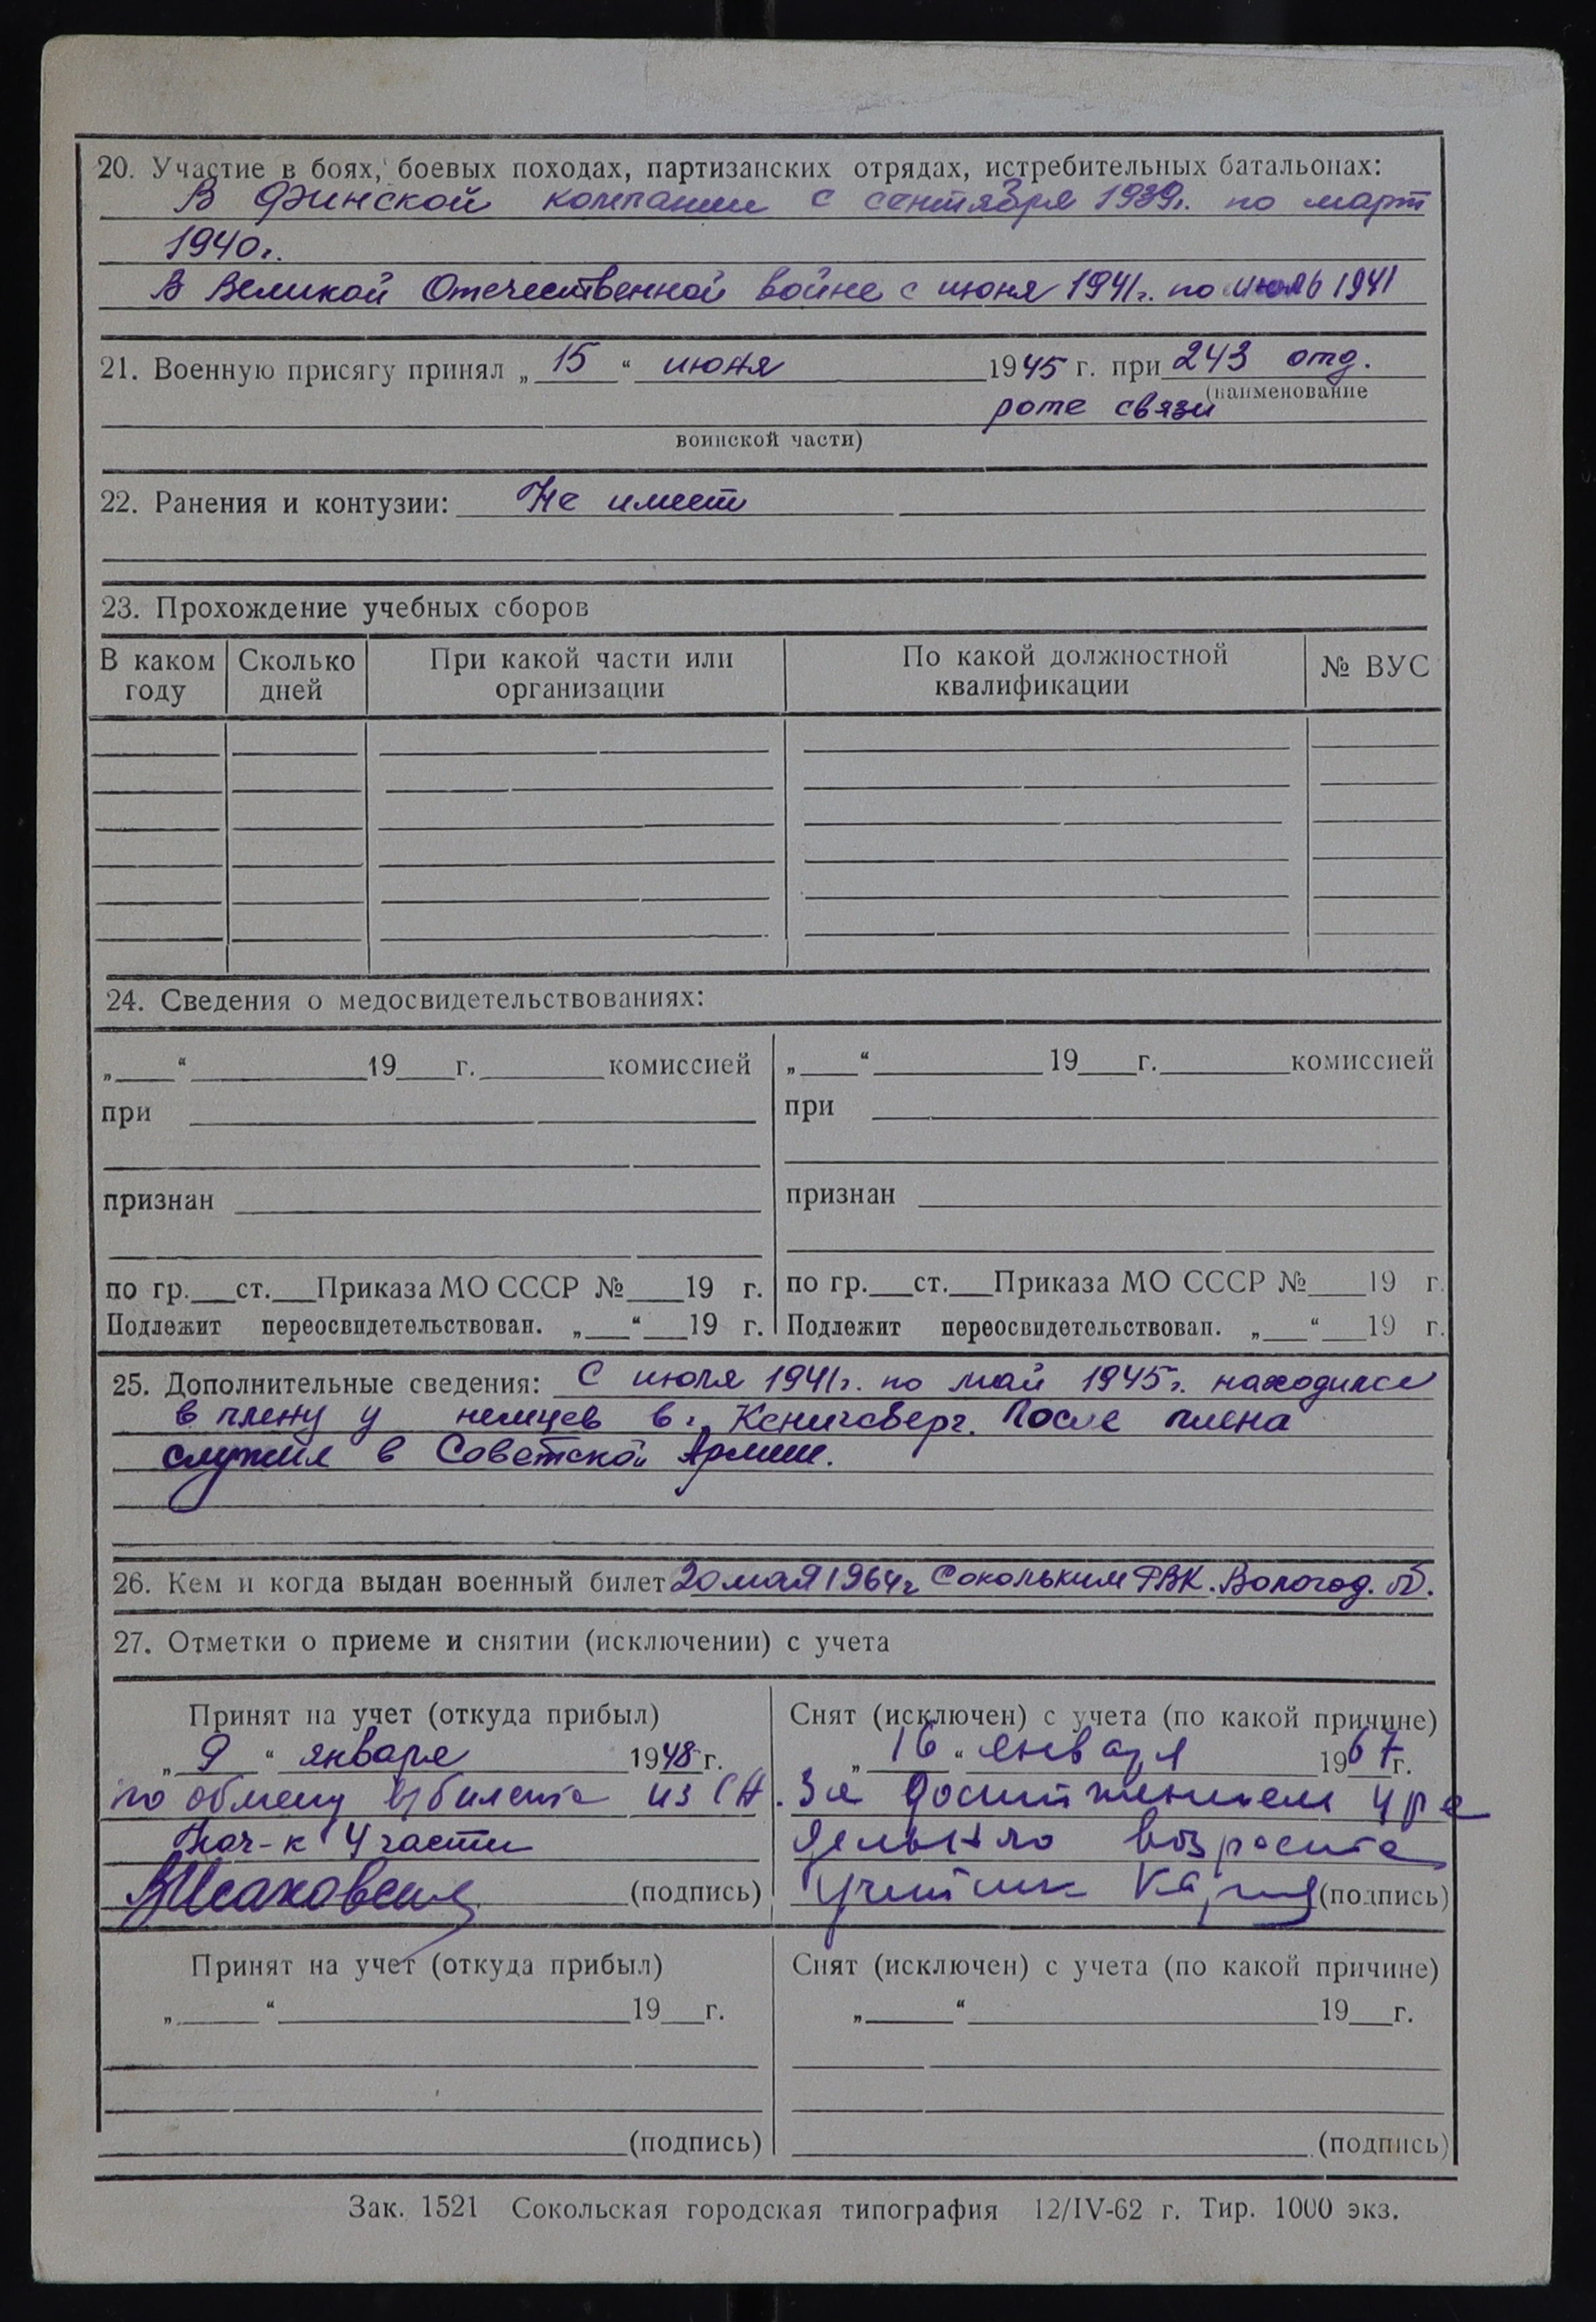 20. Участие в боях, боевых походах, партизанских отрядах, истребительных батальонах:
В Финской компании с сентября 1939г. по март
1940г.
В Великой Отечественной войне с июня 1941г. по июль 1941
21. Военную присягу принял „ 15 “ июня 1945 г. при 243 отд.
(наименование
роте связи
воинской части)
22. Ранения и контузии: Не имеет
23. Прохождение учебных сборов
В каком году | Сколько дней | При какой части или организации | По какой должностной квалификации | № ВУС
24. Сведения о медосвидетельствованиях:
„ “ 19 г. комиссией
при
признан
по гр. ст. Приказа МО СССР № 19 г.
Подлежит переосвидетельствован. „ “ 19 г.
„ “ 19 г. комиссией
при
признан
по гр. ст. Приказа МО СССР № 19 г.
Подлежит переосвидетельствован. „ “ 19 г.
25. Дополнительные сведения: С июля 1941г. по май 1945г. находился
в плену у немцев в г. Кенигсберг. После плена
служил в Советской Армии.
26. Кем и когда выдан военный билет 20 мая 1964г Сокольким РВК. Вологод. об.
27. Отметки о приеме и снятии (исключении) с учета
Принят на учет (откуда прибыл)
„ 9 “ января 1948 г.
по обмену в/билета из СА.
Нач-к 4 части
(подпись)
Снят (исключен) с учета (по какой причине)
„ 16 “ января 1967 г.
За достижением пре
дельного возраста
(подпись)
Принят на учет (откуда прибыл)
„ “ 19 г.
(подпись)
Снят (исключен) с учета (по какой причине)
„ “ 19 г.
(подпись)
Зак. 1521 Сокольская городская типография 12/IV-62 г. Тир. 1000 экз.